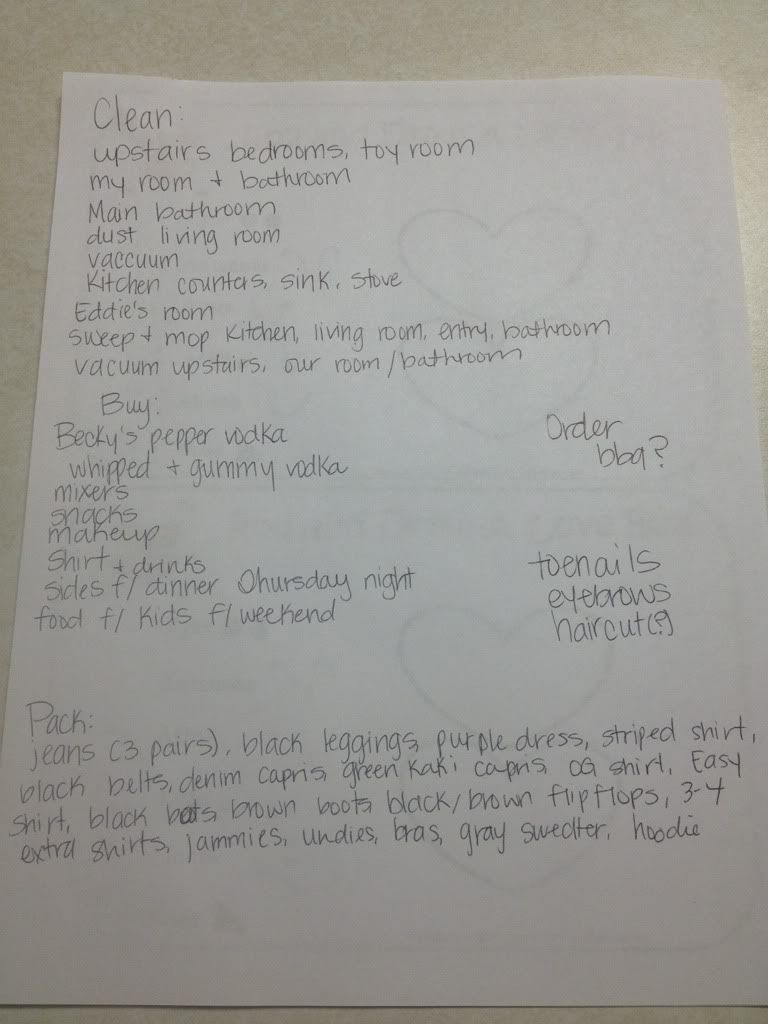 Clean:
upstairs bedrooms, toy room
my room + bathroom
Main bathroom
dust living room
vaccuum
Kitchen counters, sink, stove
Eddie's room
sweep + mop Kitchen, living room, entry, bathroom
vacuum upstairs, our room/bathroom
Buy:
Becky's pepper vodka
whipped + gummy vodka
mixers
snacks
makeup
Shirt + drinks
sides f/ dinner Ohursday night
food f/ Kids f/ weekend
Order
bbq?
toenails
eyebrows
haircut(?)
Pack:
jeans (3 pairs), black leggings, purple dress, striped shirt,
black belts, denim capris, green Kaki capris, OG shirt, Easy
shirt, black boots, brown boots, black/brown flip flops, 3-4
extra shirts, jammies, undies, bras, gray sweater, hoodie